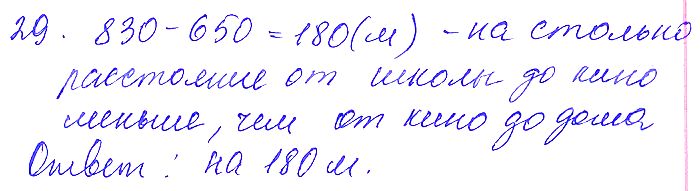 29. 830-650=180(м) -на столько
расстояние от школы до кино
меньше, чем от кино до дома
Ответ: на 180 м.